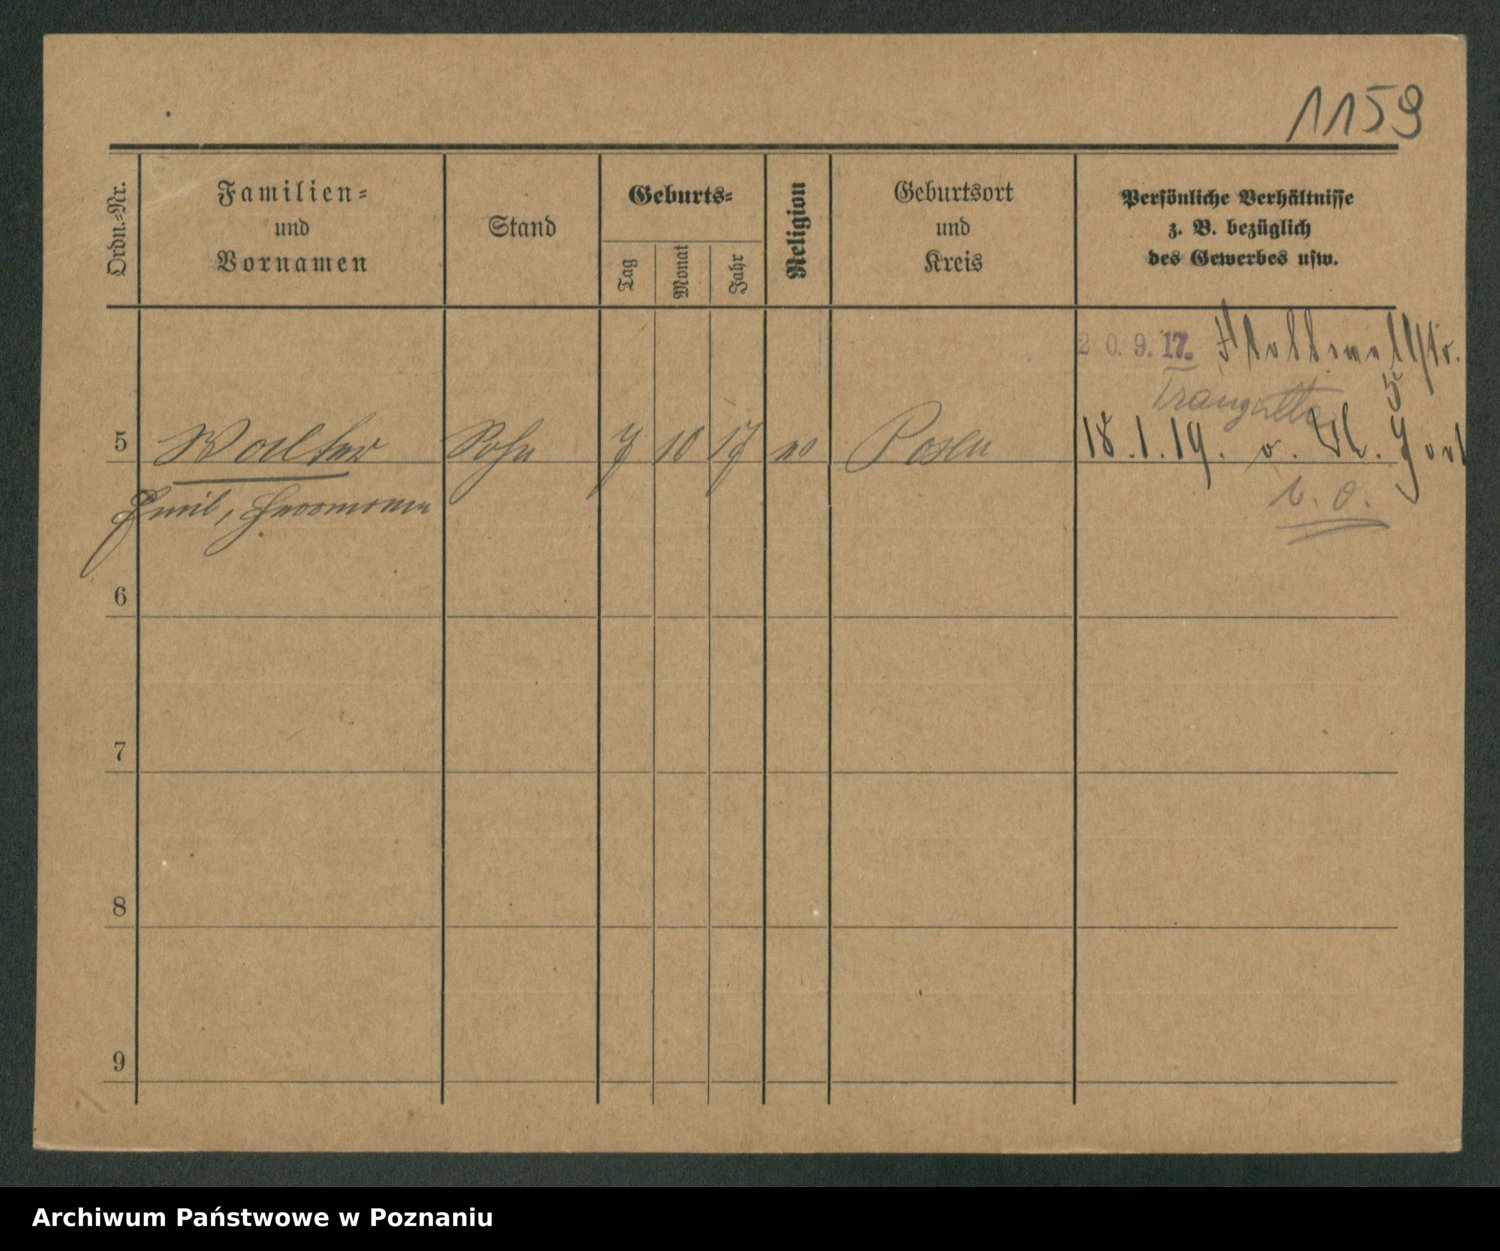 1159
Ordn.-Nr.
Familien-
und
Vornamen
Stand
Geburts-
Tag
Monat
Jahr
Religion
Geburtsort
und
Kreis
Persönliche Verhältnisse
z. B. bezüglich
des Gewerbes usw.
20.9.17.
5
5 Walter Sohn 7 10 17 Posen 18.1.19. v.
Emil, Hermann
v. o.
6
7
8
9
Archiwum Państwowe w Poznaniu